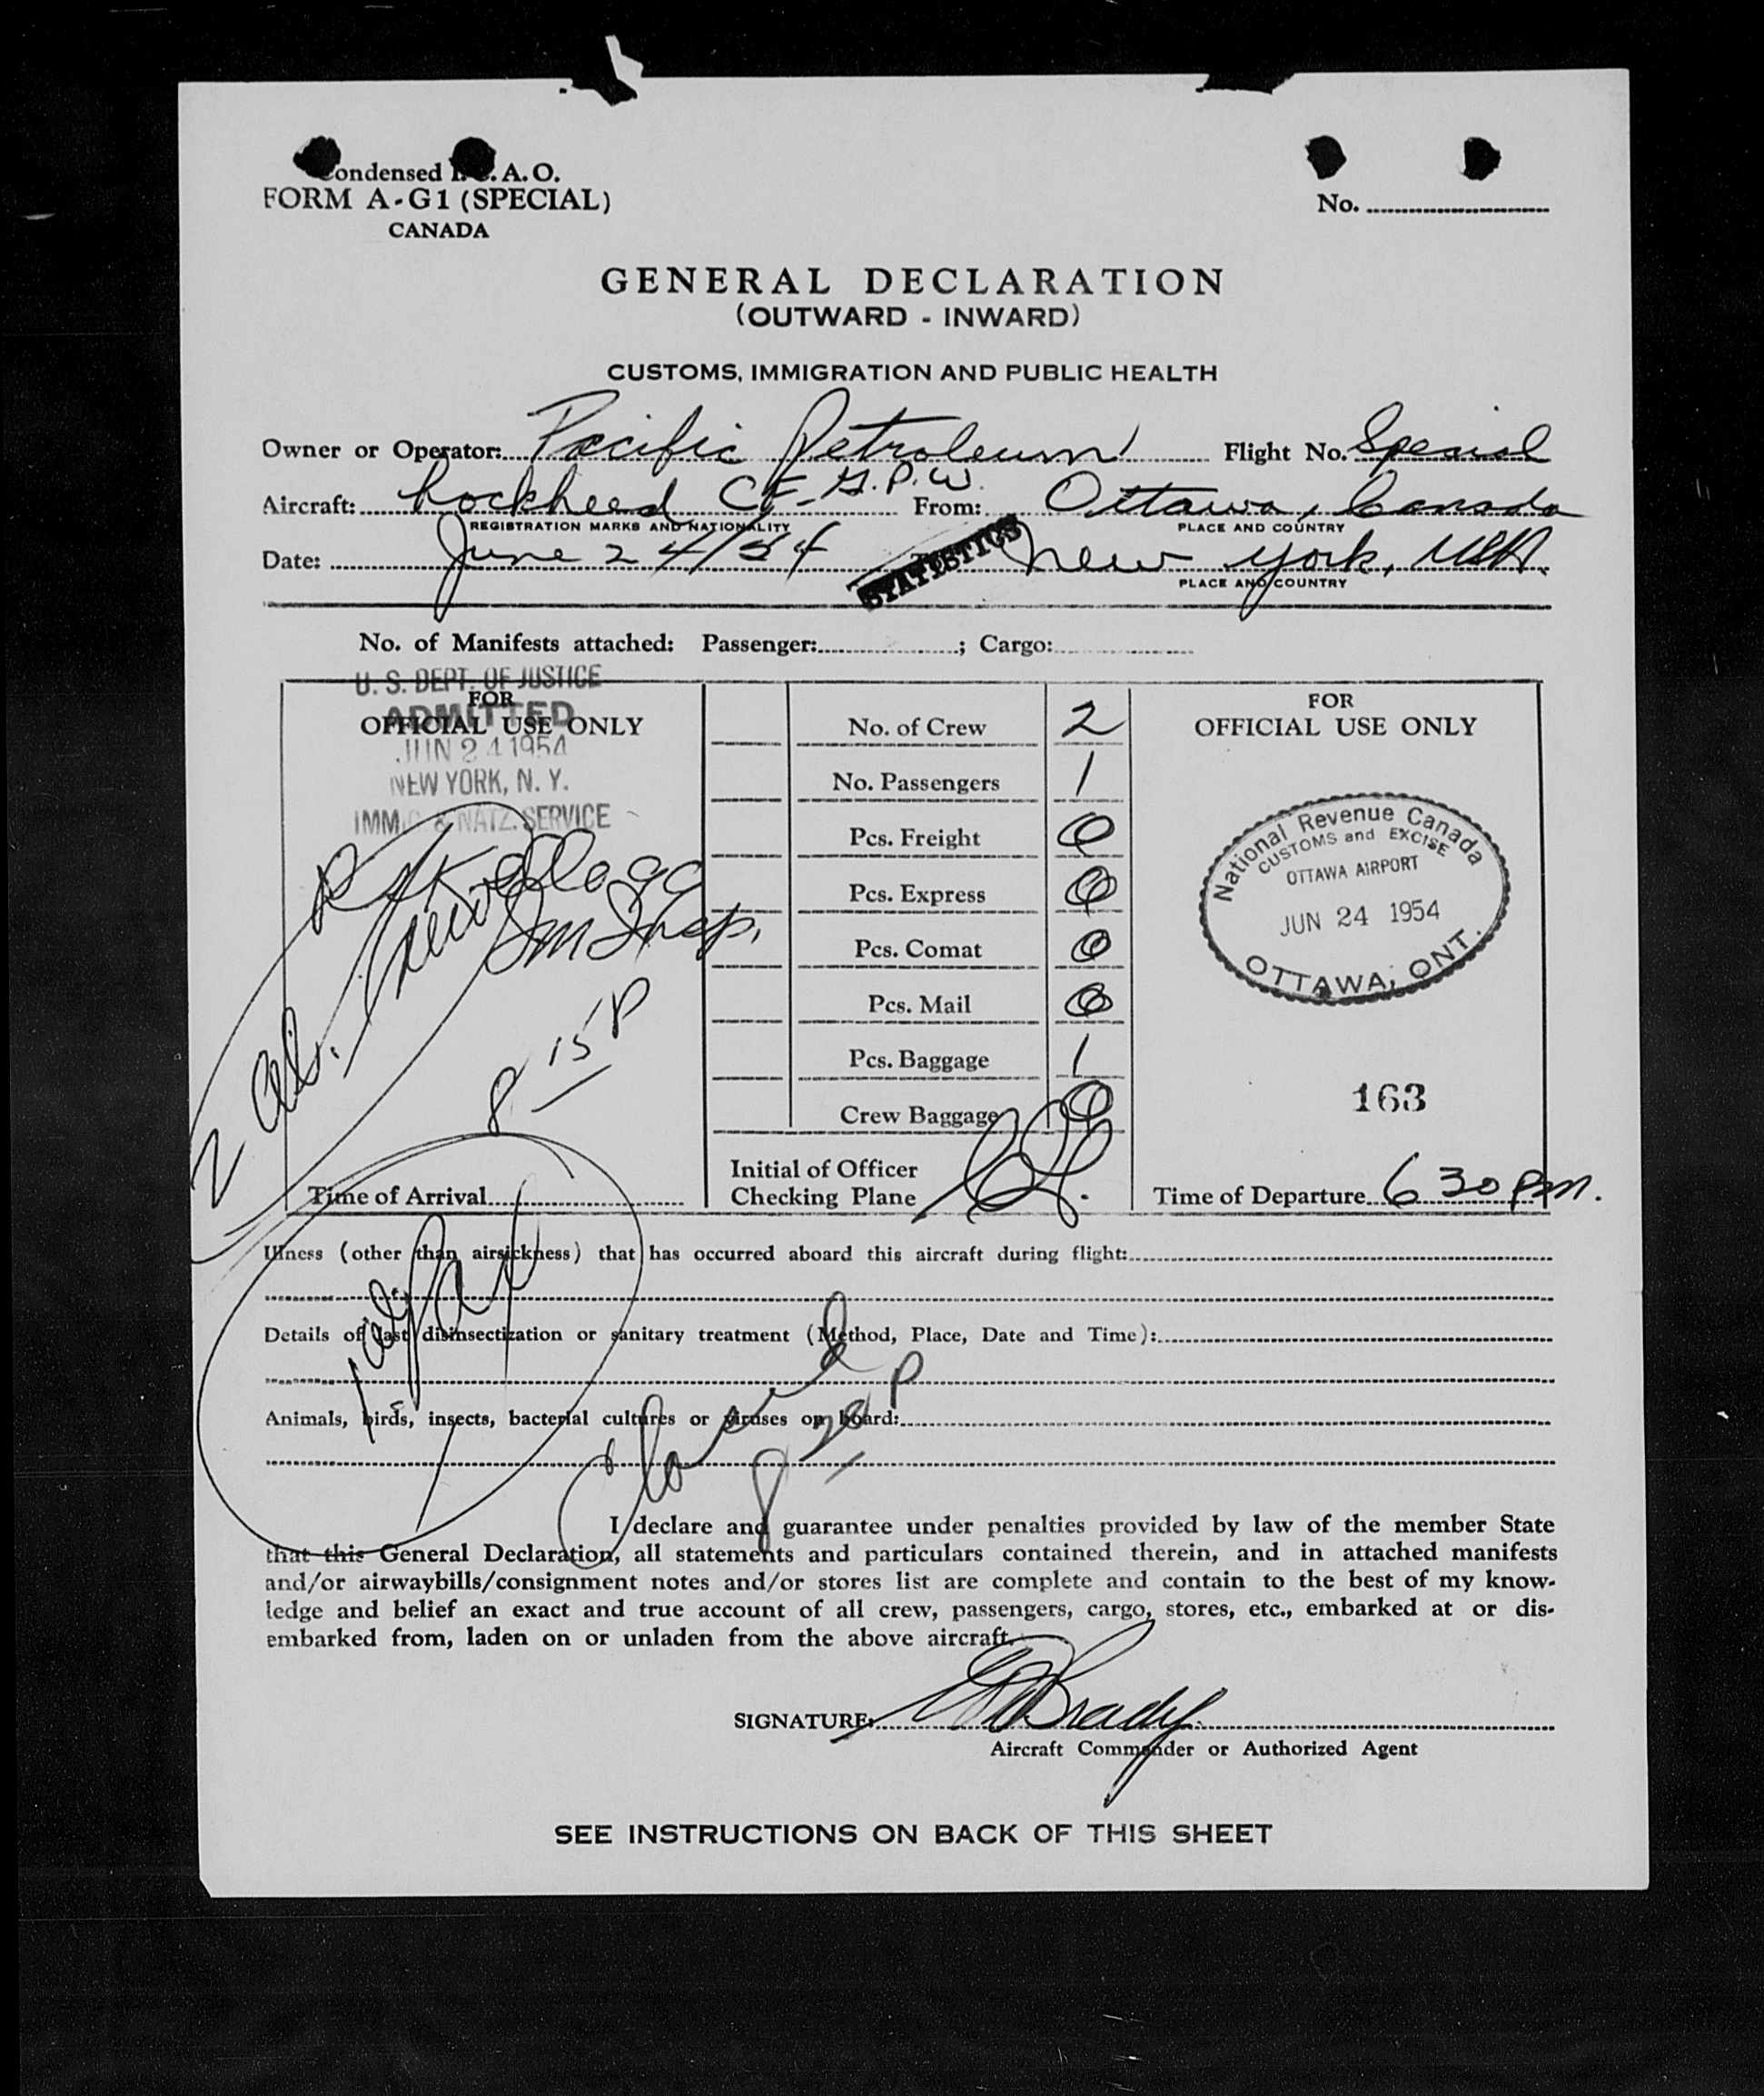 Condensed I.C.A.O.
FORM A-G1 (SPECIAL)
CANADA
No.
GENERAL DECLARATION
(OUTWARD - INWARD)
CUSTOMS, IMMIGRATION AND PUBLIC HEALTH
Owner or Operator: Pacific Petroleum Flight No. Special
Aircraft: Lockheed CF-G.P.W. From: Ottawa, Canada
REGISTRATION MARKS AND NATIONALITY PLACE AND COUNTRY
Date: June 24/54 New York, USA.
STATISTICS
PLACE AND COUNTRY
No. of Manifests attached: Passenger: ; Cargo:
U. S. DEPT. OF JUSTICE
ADMITTED
JUN 24 1954
NEW YORK, N. Y.
IMMIG & NATZ. SERVICE
FOR
OFFICIAL USE ONLY
Kellogg
Im Insp.
8 15 P
Time of Arrival
No. of Crew 2
No. Passengers 1
Pcs. Freight 0
Pcs. Express 0
Pcs. Comat 0
Pcs. Mail 0
Pcs. Baggage 1
Crew Baggage 0
Initial of Officer
Checking Plane
FOR
OFFICIAL USE ONLY
National Revenue Canada
CUSTOMS and EXCISE
OTTAWA AIRPORT
JUN 24 1954
OTTAWA, ONT.
163
Time of Departure 6 30 pm.
Illness (other than airsickness) that has occurred aboard this aircraft during flight:
Details of last disinsectization or sanitary treatment (Method, Place, Date and Time):
Animals, birds, insects, bacterial cultures or viruses on board:
8 20 P
I declare and guarantee under penalties provided by law of the member State
that this General Declaration, all statements and particulars contained therein, and in attached manifests
and/or airwaybills/consignment notes and/or stores list are complete and contain to the best of my know-
ledge and belief an exact and true account of all crew, passengers, cargo, stores, etc., embarked at or dis-
embarked from, laden on or unladen from the above aircraft.
SIGNATURE: Brady
Aircraft Commander or Authorized Agent
SEE INSTRUCTIONS ON BACK OF THIS SHEET